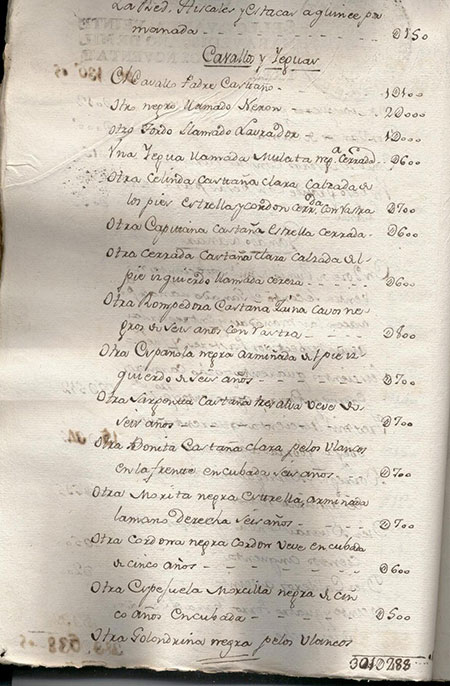 La Red, Hiscales y estacas a quince pa
manada - - - - - - D150
Cavallos y Yeguas
El Cavallo Padre Castaño - - - 1D100
Otro negro llamado Neron - - - 2D000
Otro Tordo llamado Laurador - - - 1D000
Una Yegua llamada Mulata Cerrada - D600
Otra Celinda Castaña Clara Calzada de
los pies Estrella y Cordon Cerrda. Con Rastra D700
Otra Capitana Castaña Estrella Cerrada - D600
Otra Cerrada Castaña Clara Calzada del
pie izquierdo llamada Cerera - - - D600
Otra Rompedora Castaña Zaina Cavos ne-
gros de Seis años Con Rastra - - D800
Otra Española negra Armiñada del pie iz-
quierdo de Seis años - - - D700
Otra Castaña tresalva Veve de
Seis años - - - D700
Otra Bonita Castaña clara pelos Vlancos
en la frente encubada Seis años - - D700
Otra Morita negra Estrella, Armiñada
la mano derecha Seis años - - - D700
Otra Cordona negra Cordon Veve encubada
de cinco años - - - D600
Otra Morcilla negra de Cin-
co años Encubada - - - D500
Otra Golondrina negra pelos Vlancos
301D288